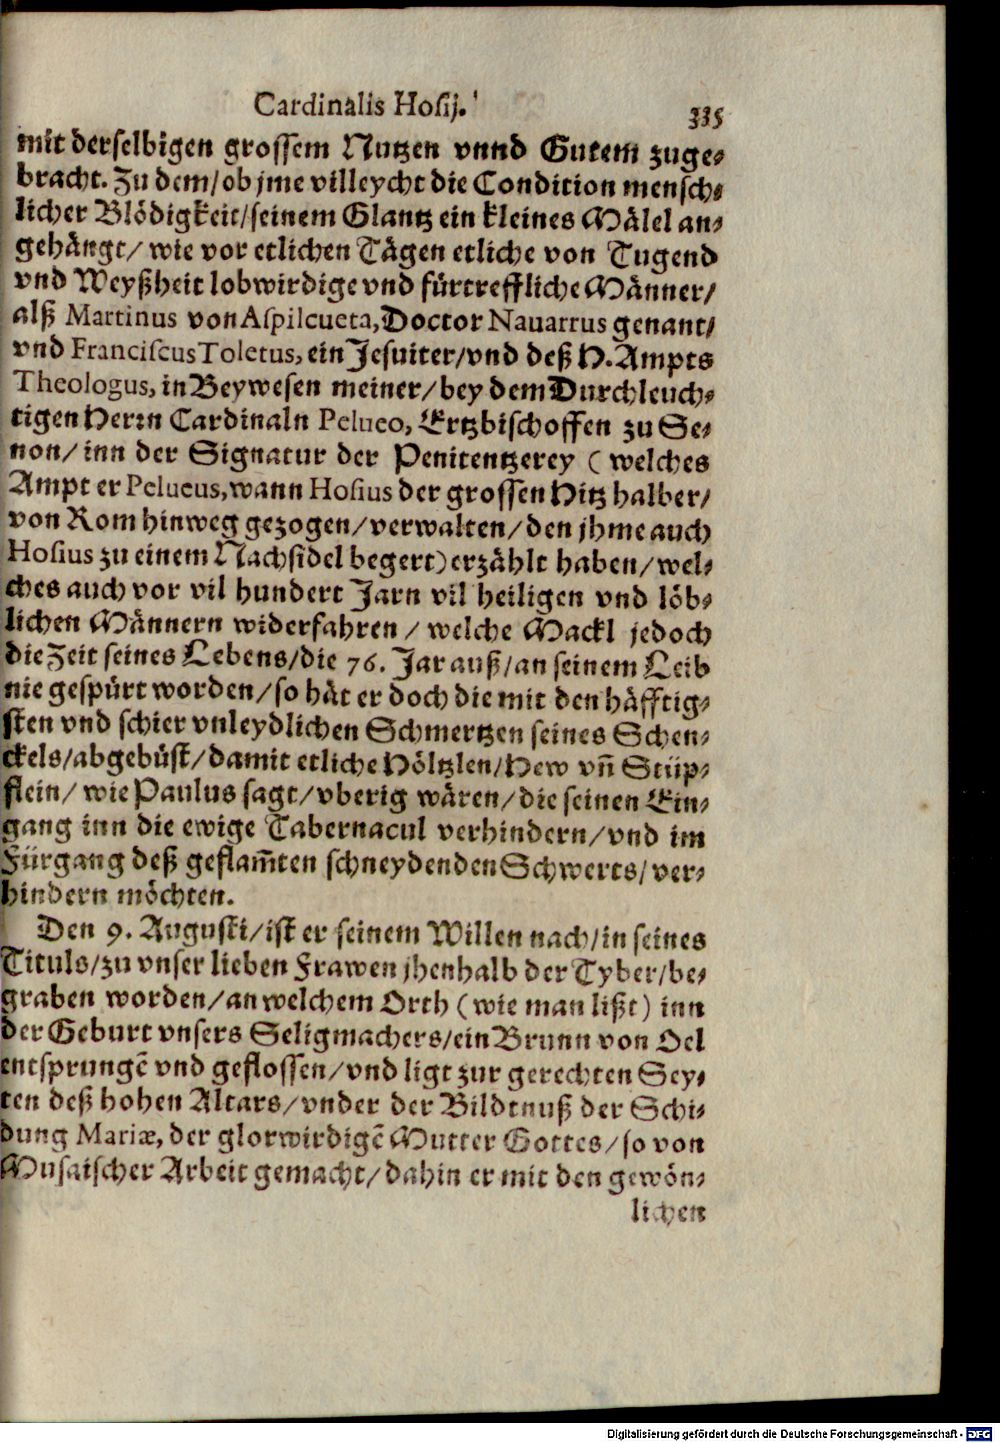 Cardinalis Hosij.
335
mit derselbigen grossem Nutzen vnnd Gutem zuge-
bracht. Zu dem/ ob jme villeycht die Condition mensch-
licher Blödigkeit/ seinem Glantz ein kleines Mälel an-
gehängt/ wie vor etlichen Tägen etliche von Tugend
vnd Weyßheit lobwirdige vnd fürtreffliche Männer/
alß Martinus von Aspilcueta, Doctor Nauarrus genant/
vnd Franciscus Toletus, ein Jesuiter/ vnd deß H. Ampts
Theologus, in Beywesen meiner/ bey dem Durchleuch-
tigen Herrn Cardinaln Pelueo, Ertzbischoffen zu Se-
non/ inn der Signatur der Penitentzerey ( welches
Ampt er Pelueus, wann Hosius der grossen Hitz halber/
von Rom hinweg gezogen/ verwalten/ den jhme auch
Hosius zu einem Nachsidel begert) erzählt haben/ wel-
ches auch vor vil hundert Jarn vil heiligen vnd löb-
lichen Männern widerfahren / welche Mackl jedoch
die Zeit seines Lebens/ die 76. Jar auß/ an seinem Leib
nie gespürt worden/ so hät er doch die mit den häfftig-
sten vnd schier vnleydlichen Schmertzen seines Schen-
ckels/ abgebüst/ damit etliche Höltzlen/ Hew vñ Stüp-
flein/ wie Paulus sagt/ vberig wären/ die seinen Ein-
gang inn die ewige Tabernacul verhindern/ vnd im
Fürgang deß geflam̃ten schneydenden Schwerts/ ver-
hindern möchten.
Den 9. Augusti/ ist er seinem Willen nach/ in seines
Tituls/ zu vnser lieben Frawen jhenhalb der Tyber/ be-
graben worden/ an welchem Orth ( wie man lißt) inn
der Geburt vnsers Seligmachers/ ein Brunn von Oel
entsprungẽ vnd geflossen/ vnd ligt zur gerechten Sey-
ten deß hohen Altars/ vnder der Bildtnuß der Schi-
dung Mariæ, der glorwirdigẽ Mutter Gottes/ so von
Musaischer Arbeit gemacht/ dahin er mit den gewön-
lichen
Digitalisierung gefördert durch die Deutsche Forschungsgemeinschaft - DFG